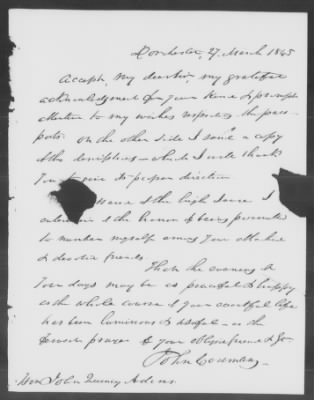 Dorchester, 27 March 1845
Accept, my dear Sir, my grateful
acknowledgment for your kind & prompt
attention to my wishes respecting the pass-
port. On the other side I send a copy
of the description — which I will thank
you to give its proper direction
the high
the honor of being permitted
to number myself among your
& devoted friends.
That the evening of
your days may be as peaceful & happy
as the whole course of your eventful life
has been luminous & useful — is the
fervent prayer of your obliged friend &
John Codman
Hon John Quincy Adams.